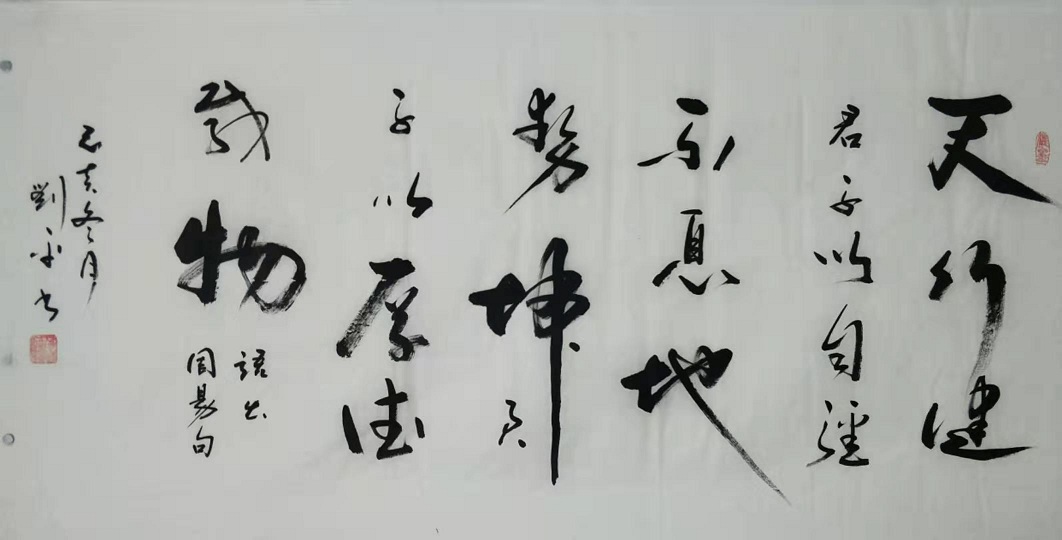 天行健
君子以自彊
不息地
势坤君
子以厚德
载物
語出
周易句
己亥冬月
劉平书